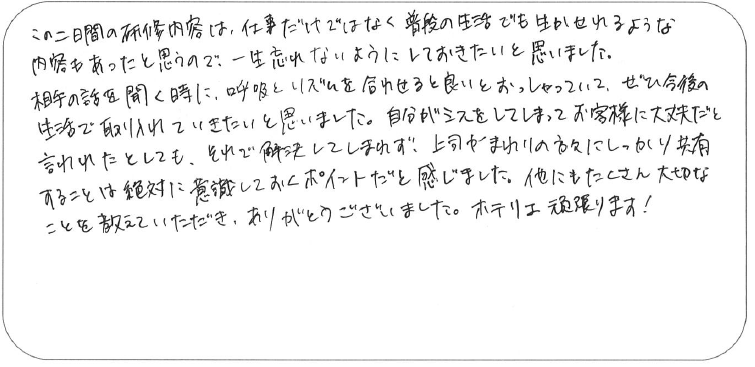 この二日間の研修内容は、仕事だけではなく普段の生活でも生かせれるような
内容もあったと思うので、一生忘れないようにしておきたいと思いました。
相手の話を聞く時に、呼吸とリズムを合わせると良いとおっしゃっていて、ぜひ今後の
生活で取り入れていきたいと思いました。自分がミスをしてしまってお客様に大丈夫だと
言われたとしても、それで解決してしまわず、上司やまわりの方々にしっかり共有
することは絶対に意識しておくポイントだと感じました。他にもたくさん大切な
ことを教えていただき、ありがとうございました。ホテリエ頑張ります!